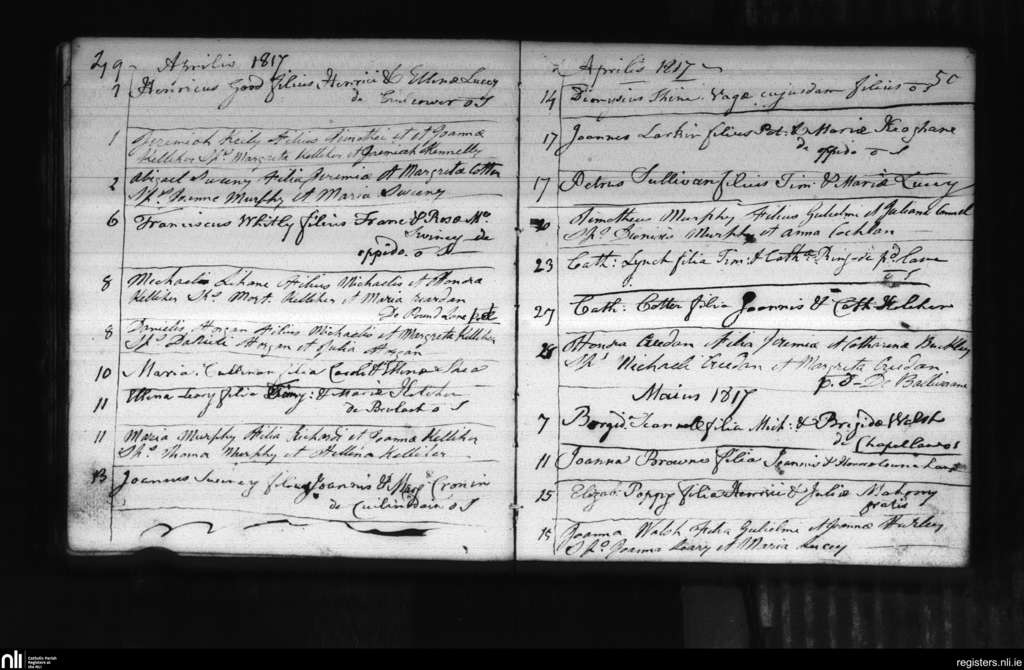 49 Aprilis 1817
1 Henricus Good filius Henrici & Ellenæ Lucey
de o S
1 Jeremiah Keily filius Timothei et Joanna
Kelliher Sps. Margreta Kelliher et Jeremiah Kennelly
2 Abigael Sweeny filia Jeremiæ et Margretæ Cotter
Sps. Murphy et Maria Sweeny
6 Franciscus Whitly filius Franc: & Rosæ Mc.
Swiney de
oppido. o S
8 Michaelis Lihane filius Michaelis et Honora
Kelliher Sps. Mort. Kelliher et Maria Reardan
De Pound Lane
8 Danielis Horgan filius Michaelis et Margreta Kelliher
Sps. Danielis Horgan et Julia Horgan
10 Maria: Cullinan filia & Ellenæ Shea
11 Ellena Leary filia Timy: & Mariæ Fletcher
de o S
11 Maria Murphy filia Richardi et Joanna Kelliher
Sps. Thoma Murphy et Hellena Kelliher
13 Joannes Swiney filius Joannis & Marg. Cronin
de o S
Aprilis 1817
50
14 Dionysius Shine. Vagæ cujusdam filius o S
17 Joannes Larkin filius Pat: & Mariæ Keoghane
de oppido o S
17 Petrus Sullivan filius Tim: & Mariæ Lucey
20 Timotheus Murphy filius Gulielmi et Juliana
Sps. Murphy et Anna Coghlan
23 Cath: Lynch filia Tim: & Cath: Ring de Lane
o S
27 Cath: Cotter filia Joannis & Cath Kelleher
28 Honora Creedan filia Jeremiæ et Catharena Buckley
Sps. Michaele Creedan et Margreta Creedan
p. d - De
Maius 1817
7 Brigid: filia Mich: & Brigidæ Walsh
de
11 Joanna Browne filia Joannis &
15 Elizab: Poppy filia Henrici & Juliæ Mahony
gratis
15 Joanna Walsh filia Gulielmi et Joannæ Hurley
Sps. Joanna Leary et Maria Lucey
nli Catholic Parish
Registers at
the NLI
registers.nli.ie